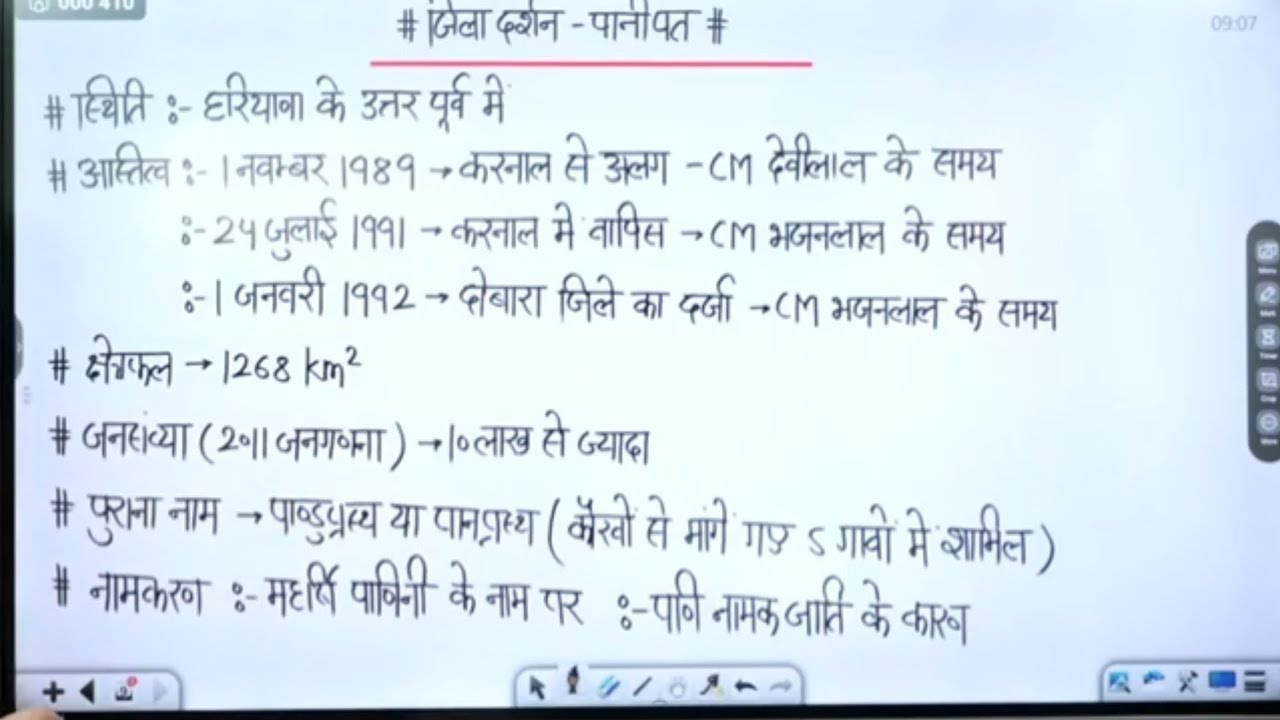 000 410
09:07
# जिला दर्शन - पानीपत #
# स्थिति :- हरियाणा के उत्तर पूर्व में
# अस्तित्व :- 1 नवम्बर 1989 → करनाल से अलग - CM देवीलाल के समय
:- 24 जुलाई 1991 → करनाल में वापिस → CM भजनलाल के समय
:- 1 जनवरी 1992 → दोबारा जिले का दर्जा → CM भजनलाल के समय
# क्षेत्रफल → 1268 km²
# जनसंख्या (2011 जनगणना) → 10 लाख से ज्यादा
# पुराना नाम → पाण्डुप्रस्थ या पानप्रस्थ (कौरवों से मांगे गए 5 गावों में शामिल)
# नामकरण :- महर्षि पाणिनी के नाम पर :- पणि नामक जाति के कारण